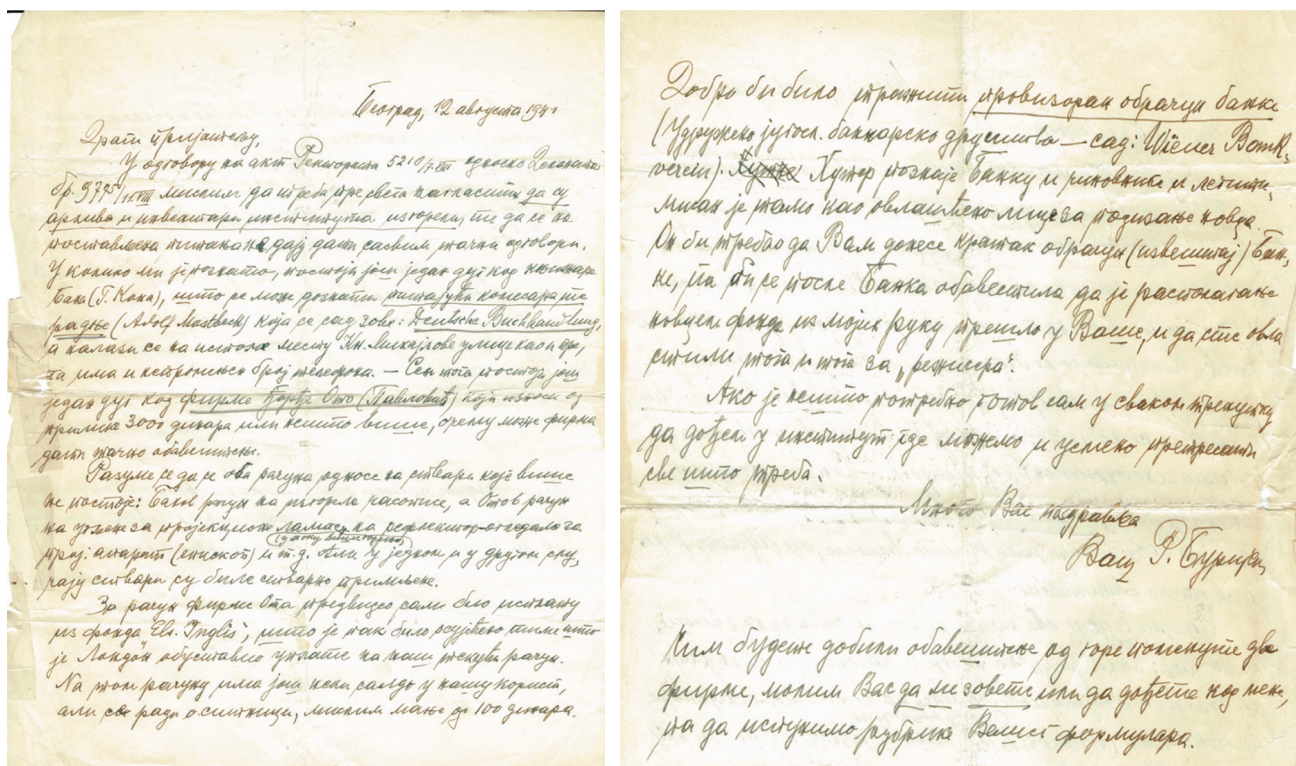 Београд, 12 августа 1941
Драги пријатељу,
У одговору на акт Ректората 5210/7.VIII односно Деканата
бр. 9795/11.VIII мислим, да треба пре свега нагласити да су
архива и инвентари института изгорели, те да се на
постављена питања не дају дати сасвим тачни одговори.
У колико ми је познато, постоји још један дуг код књижаре
Бака (Г. Кона), што се може дознати питајући комесара те
радње (Adolf Mostbeck) која се сад зове: Deutsche Buchhandlung,
а налази се на истоме месту Кн. Михајлове улице као и пре,
па има и непромењен број телефона. — Сем тога постоји још
један дуг код фирме Ђорђе Ото (Павловић) који износи од
прилике 3000 динара или нешто више, о чему може фирма
дати тачно обавештење.
Разуме се да се оба рачуна односе на ствари које више
не постоје: Баков рачун на изгореле часописе, а Отов рачун
на угљене за пројекционе лампе, на рефлектор-огледало за
прој. апарат (епископ) и т.д. Али у једном и у другом слу-
чају ствари су биле стварно примљене.
За рачун фирме Ота предвидео сам био исплату
из фонда „Ev. Inglis", што је пак било осујећено тиме што
је Лондон обуставио уплате на наш текући рачун.
На том рачуну има још неки салдо у нашу корист,
али се ради о ситници, мислим мање од 100 динара.
Добро би било тражити провизоран обрачун банке
(Удружено југосл. банкарско друштво — сад: Wiener Bank-
verein). Хутер познаје Банку и чиновнике и легити-
мисан је тамо као овлашћено лице за подизање новца.
Он би требао да Вам донесе кратак обрачун (извештај) Бан-
ке, па би се после Банка обавестила да је располагање
новцем фонда из мојих руку прешло у Ваше, и да сте овла
стили тога и тога за „режисера".
Ако је нешто потребно готов сам у сваком тренутку
да дођем у институт где можемо и усмено претресати
све што треба.
Много Вас поздравља
Ваш Р. Буријан
Чим будете добили обавештење од горе поменуте две
фирме, молим Вас да ме зовете или да дођете код мене,
па да испунимо рубрике Вашег формулара.